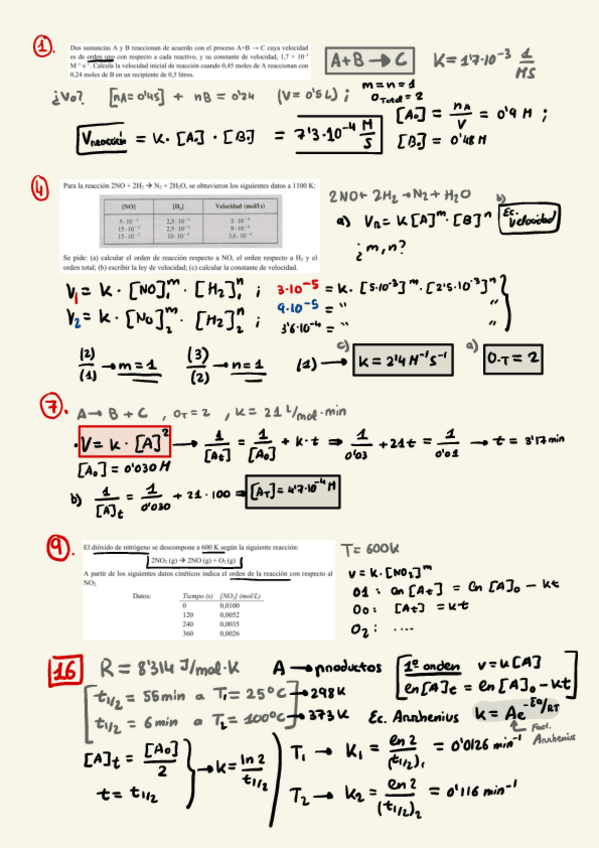 1.
Dos sustancias A y B reaccionan de acuerdo con el proceso A+B → C cuya velocidad
es de orden uno con respecto a cada reactivo, y su constante de velocidad, 1,7 × 10⁻³
M⁻¹·s⁻¹. Calcule la velocidad inicial de reacción cuando 0,45 moles de A reaccionan con
0,24 moles de B en un recipiente de 0,5 litros.
A+B → C
K = 1'7·10⁻³ 1/MS
¿V₀? [nA = 0'45] + nB = 0'24 (V = 0'5 L) ;
m = n = 1
O Total = 2
[A₀] = nA/V = 0'9 M ;
[B₀] = 0'48 M
Vreacción = K · [A₀] · [B₀] = 7'3·10⁻⁴ M/S
4.
Para la reacción 2NO + 2H₂ → N₂ + 2H₂O, se obtuvieron los siguientes datos a 1100 K:
[NO] [H₂] Velocidad (mol/l·s)
5·10⁻³ 2,5·10⁻³ 3·10⁻⁵
15·10⁻³ 2,5·10⁻³ 9·10⁻⁵
15·10⁻³ 10·10⁻³ 3,6·10⁻⁴
Se pide: (a) calcular el orden de reacción respecto a NO, el orden respecto a H₂ y el
orden total; (b) escribir la ley de velocidad; (c) calcular la constante de velocidad.
2NO + 2H₂ → N₂ + H₂O
b)
a) Vn = K [A]ᵐ · [B]ⁿ
Ec. velocidad
¿m, n?
V₁ = K · [NO]₁ᵐ · [H₂]₁ⁿ ; 3·10⁻⁵ = K · [5·10⁻³]ᵐ · [2'5·10⁻³]ⁿ
V₂ = K · [NO]₂ᵐ · [H₂]₂ⁿ ; 9·10⁻⁵ = " "
3'6·10⁻⁴ = " "
(2)/(1) → m = 1 (3)/(2) → n = 1 (1) → c) K = 2'4 M⁻¹s⁻¹ a) O.T = 2
7.
A → B + C , O T = 2 , K = 21 L/mol·min
· V = K · [A]² → 1/[At] = 1/[A₀] + K·t ⇒ 1/0'03 + 21t = 1/0'01 → t = 3'17 min
[A₀] = 0'030 M
b) 1/[A]t = 1/0'030 + 21·100 ⇒ [AT] = 4'7·10⁻⁴ M
9.
El dióxido de nitrógeno se descompone a 600 K según la siguiente reacción:
2NO₂ (g) → 2NO (g) + O₂ (g)
A partir de los siguientes datos cinéticos indica el orden de la reacción con respecto al
NO₂
Datos: Tiempo (s) [NO₂] (mol/L)
0 0,0100
120 0,0052
240 0,0035
360 0,0026
T = 600K
v = K·[NO₂]ᵐ
O1 : Ln [At] = Ln [A]₀ - Kt
O₀ : [At] = Kt
O₂ : ....
16
R = 8'314 J/mol·K A → productos
1º orden v = K[A]
ln[A]t = ln[A]₀ - Kt
t1/2 = 55 min a T₁ = 25°C → 298K
t1/2 = 6 min a T₂ = 100°C → 373K
Ec. Arrhenius K = Ae^-Ea/RT
Fact. Arrhenius
[A]t = [A₀]/2
t = t1/2
→ K = ln 2/t1/2
T₁ → K₁ = ln 2/(t1/2)₁ = 0'0126 min⁻¹
T₂ → K₂ = ln 2/(t1/2)₂ = 0'116 min⁻¹